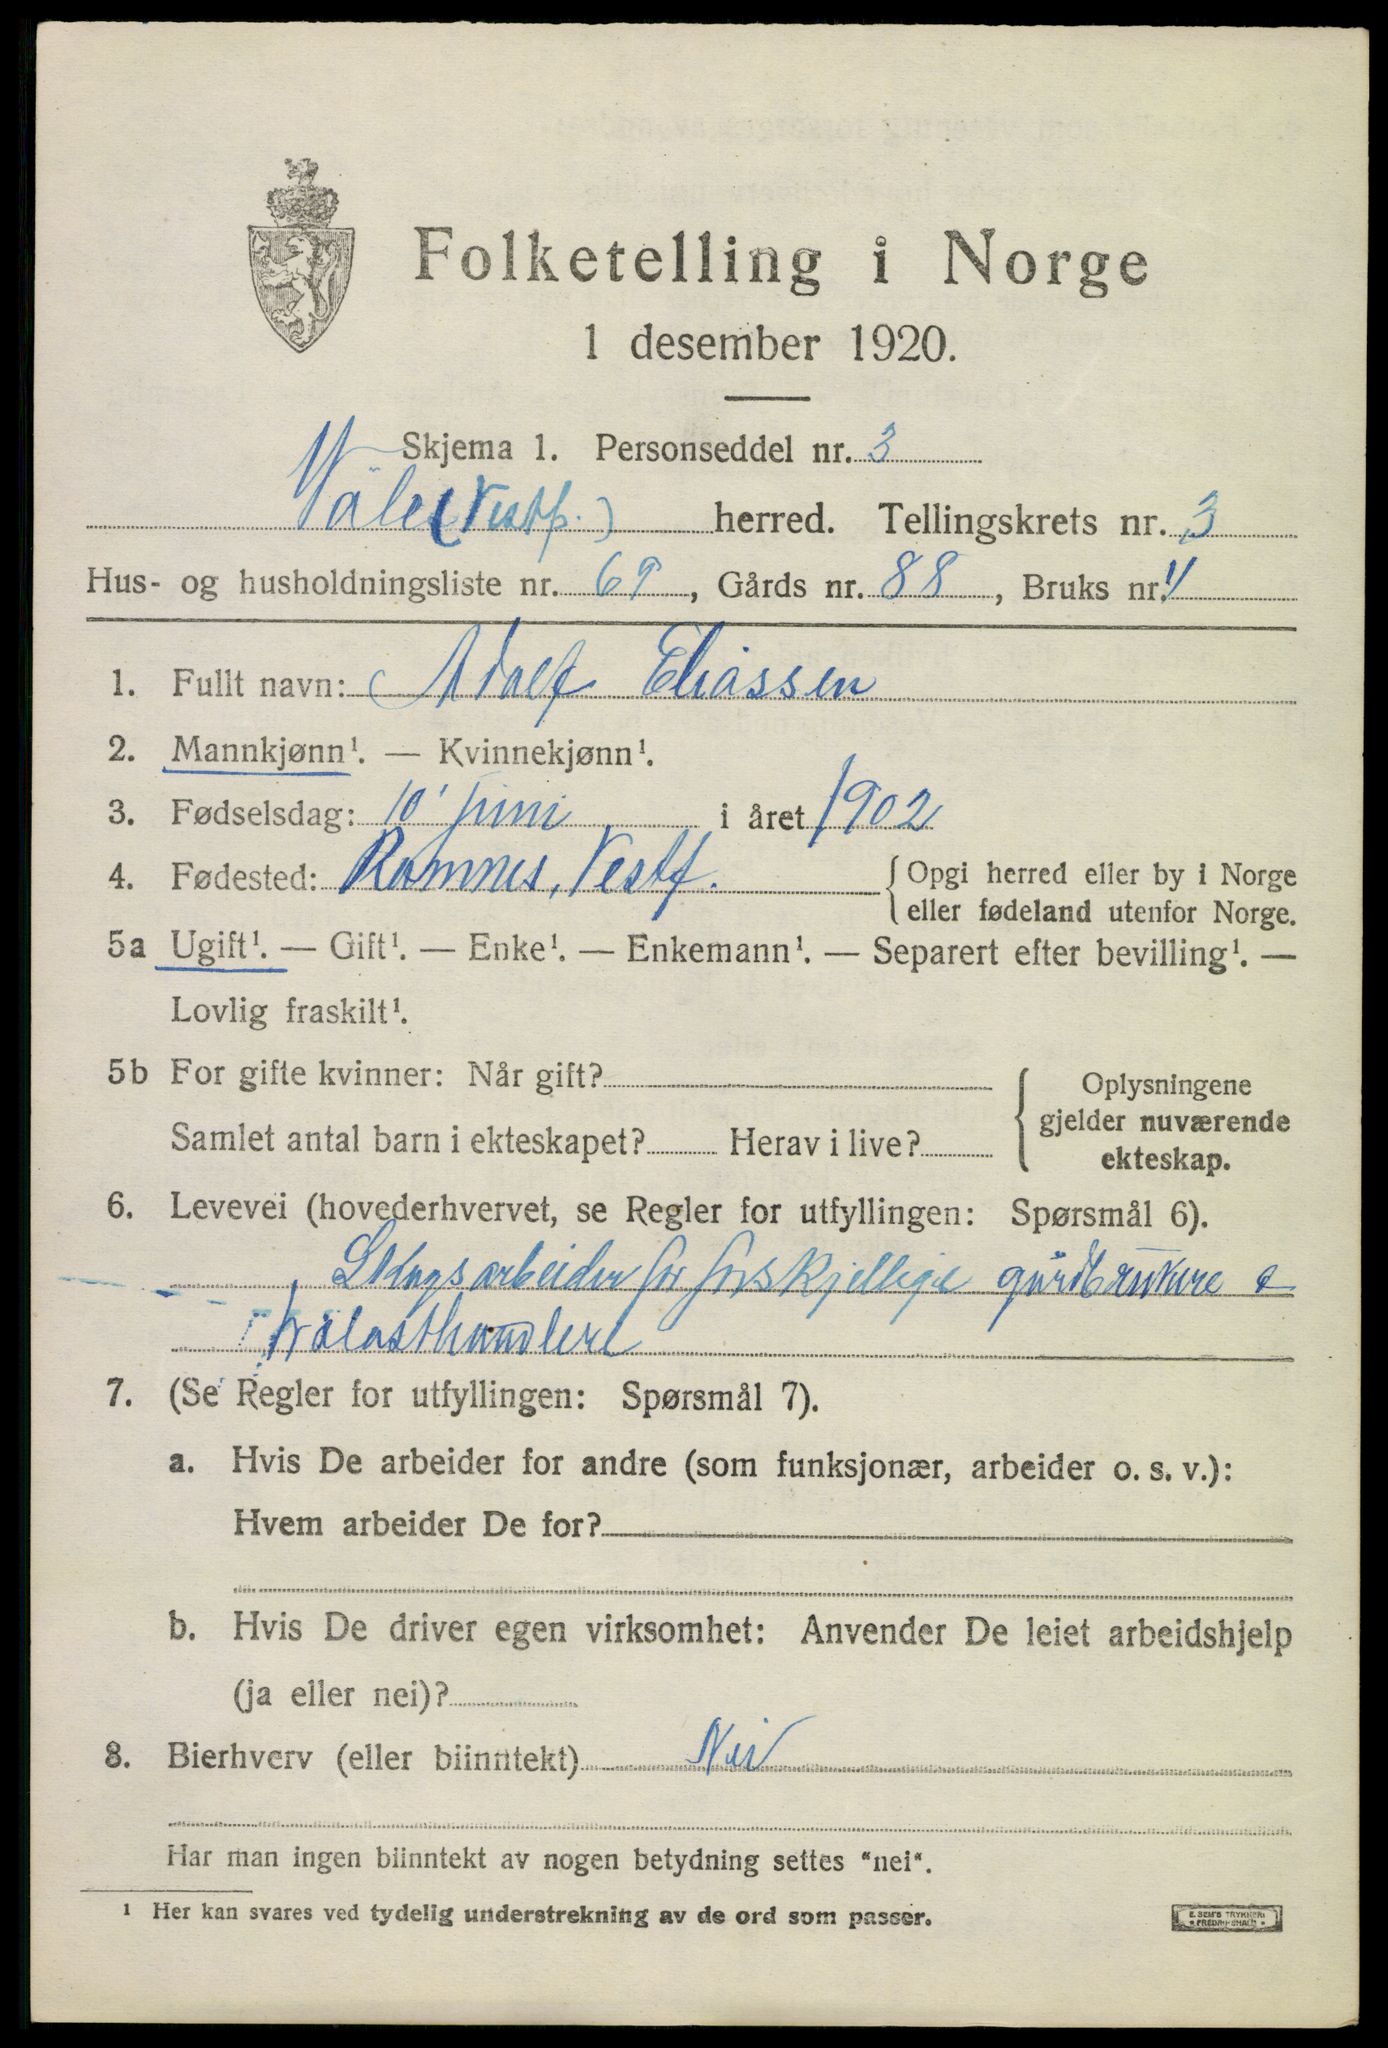 Folketelling i Norge
1 desember 1920.
Skjema 1. Personseddel nr. 3
Våle (Vestf.) herred. Tellingskrets nr. 3
Hus- og husholdningsliste nr. 69, Gårds nr. 88, Bruks nr.
1. Fullt navn: Adolf Eliassen
2. Mannkjønn¹. — Kvinnekjønn¹.
3. Fødselsdag: 10' juni i året 1902
4. Fødested: Ramnes, Vestf. { Opgi herred eller by i Norge
eller fødeland utenfor Norge.
5a Ugift¹. — Gift¹. — Enke¹. — Enkemann¹. — Separert efter bevilling¹. —
Lovlig fraskilt¹.
5b For gifte kvinner: Når gift?
Samlet antal barn i ekteskapet? Herav i live?
{ Oplysningene
gjelder nuværende
ekteskap.
6. Levevei (hovederhvervet, se Regler for utfyllingen: Spørsmål 6).
Skogsarbeider for forskjellige gårdbrukere &
trælasthandlere
7. (Se Regler for utfyllingen: Spørsmål 7).
a. Hvis De arbeider for andre (som funksjonær, arbeider o. s. v.):
Hvem arbeider De for?
b. Hvis De driver egen virksomhet: Anvender De leiet arbeidshjelp
(ja eller nei)?
8. Bierhverv (eller biinntekt) Nei
Har man ingen biinntekt av nogen betydning settes "nei".
¹ Her kan svares ved tydelig understrekning av de ord som passer.
E. SEM'S TRYKKERI
FREDRIKSHALD